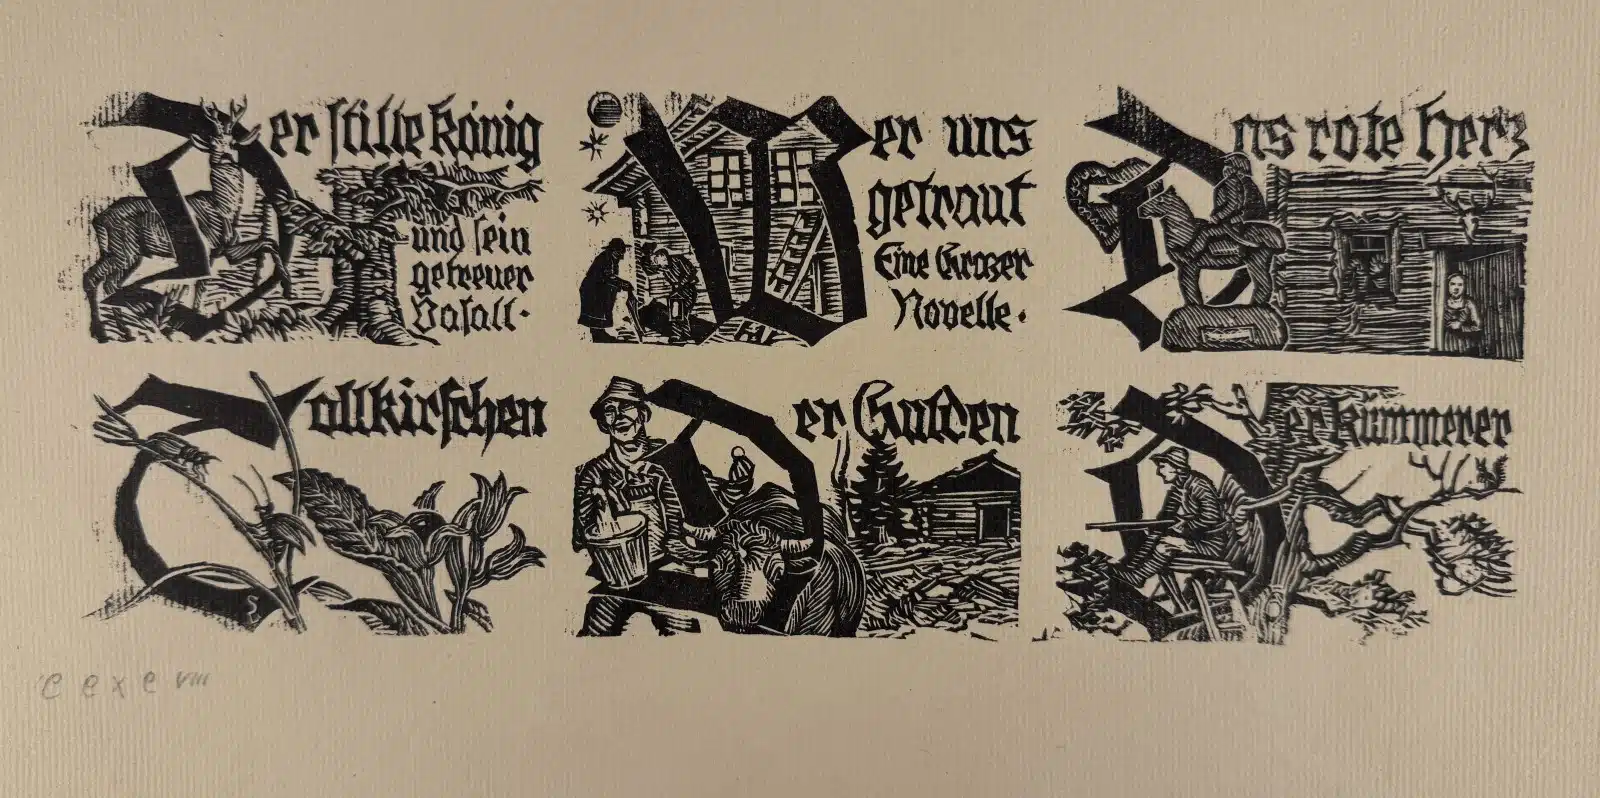 Der stille König
und sein
getreuer
Vasall.
Wer uns
getraut
Eine Grazer
Novelle.
Das rote Herz
Tollkirschen
Der Gulden
Der Kümmerer
S